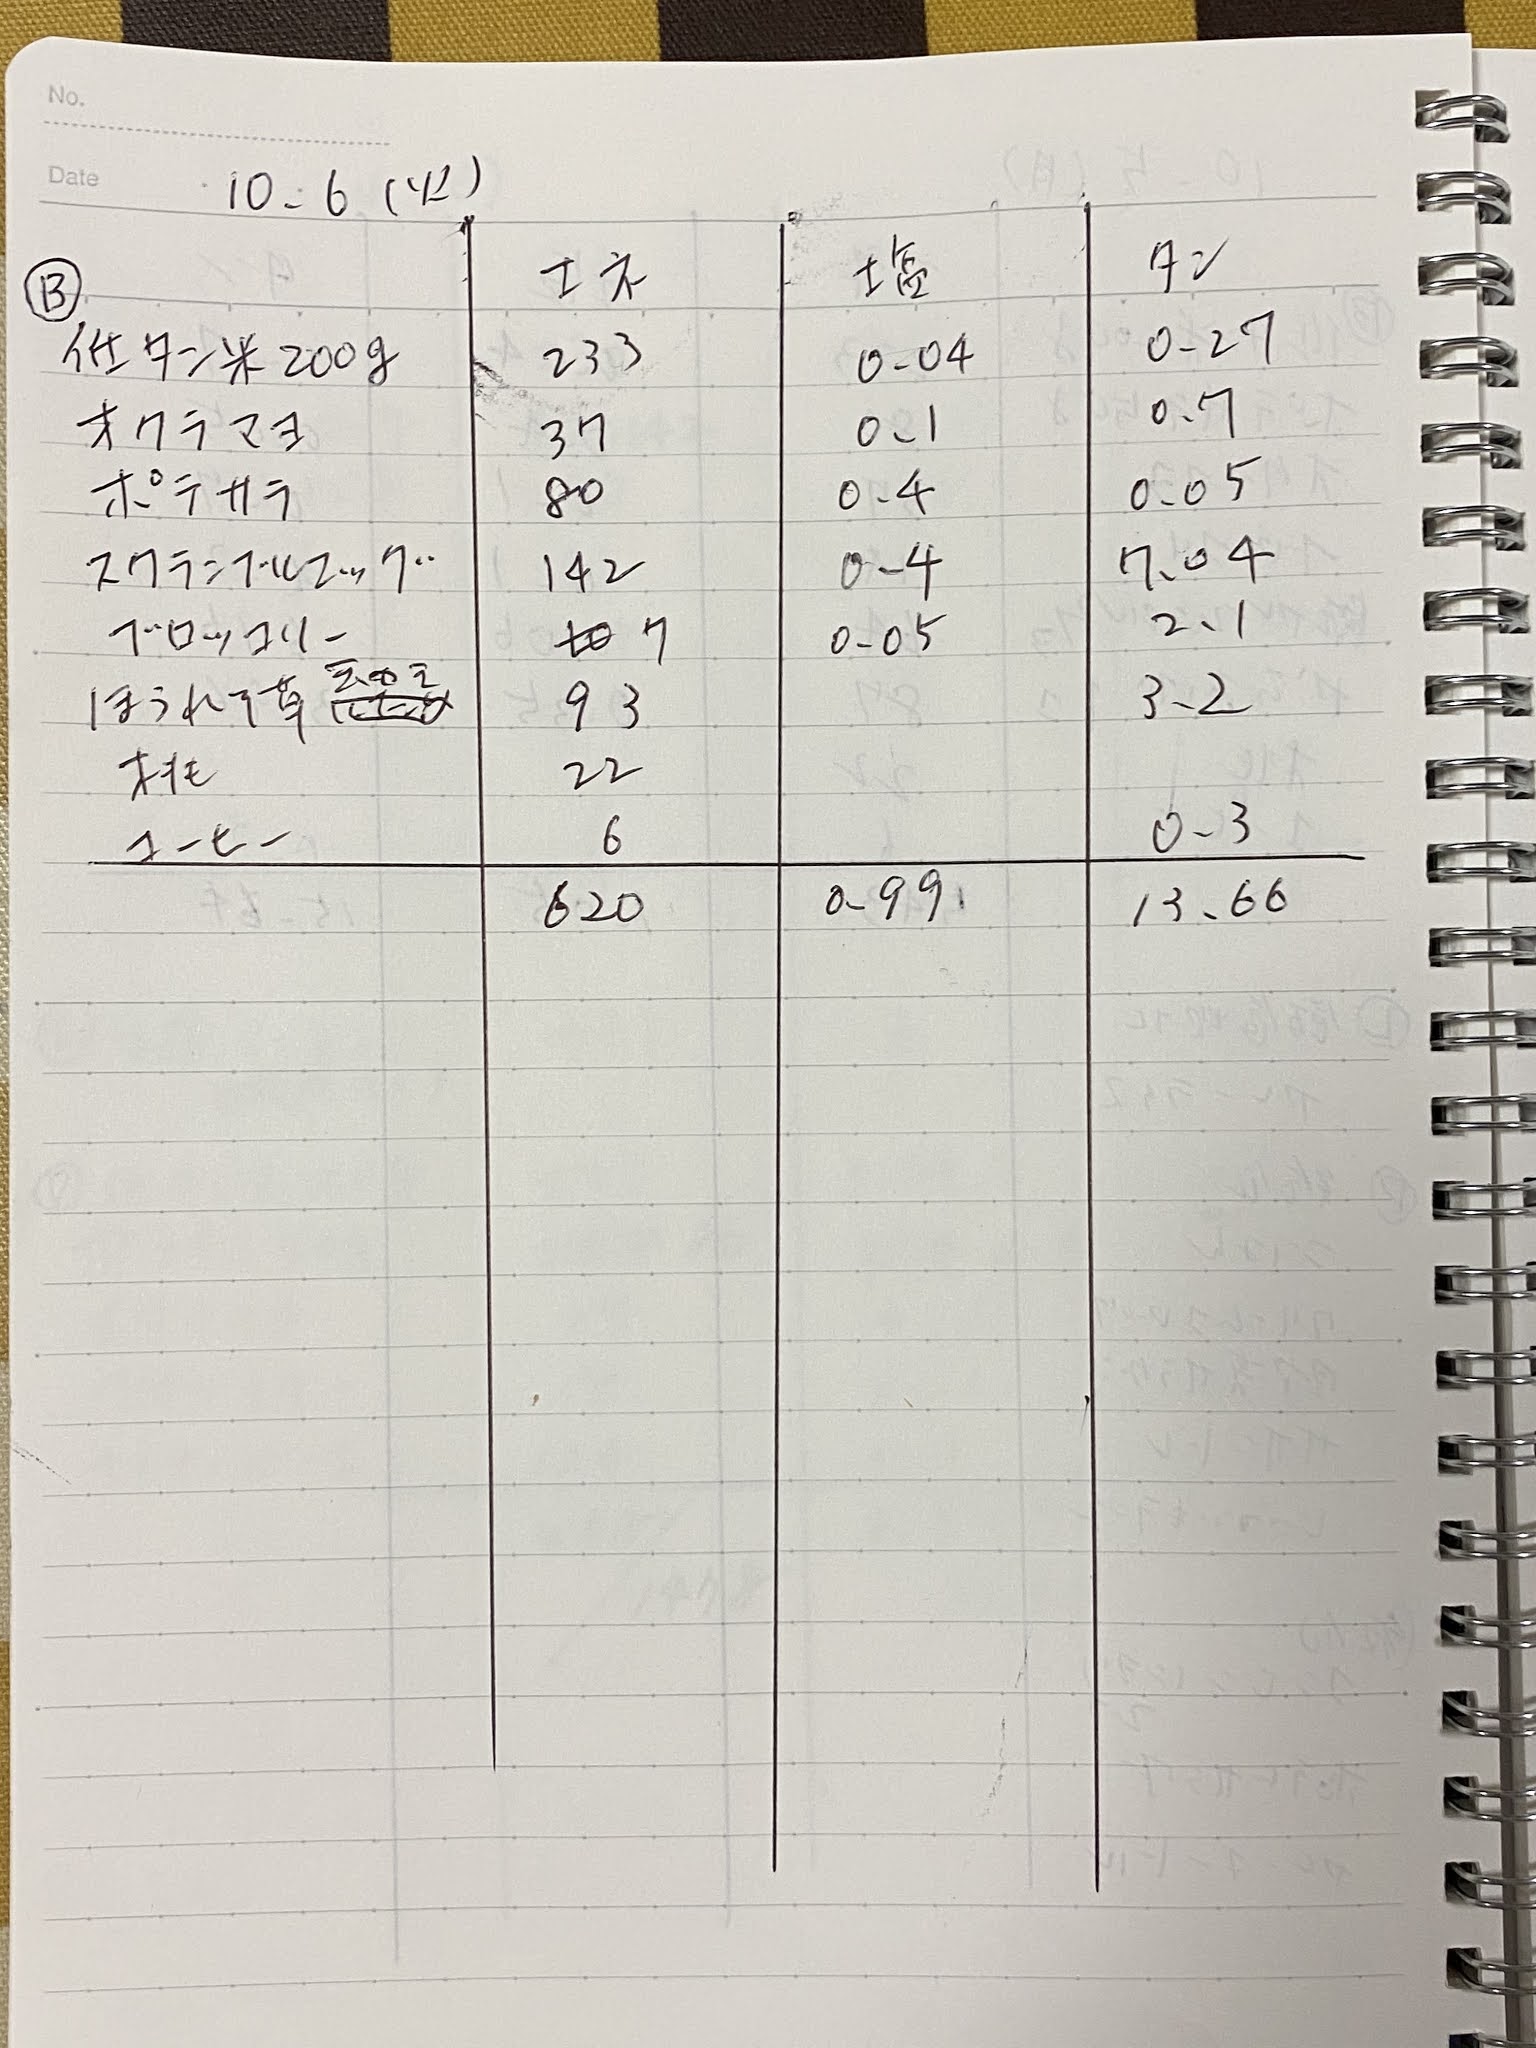 No.
Date 10-6(火)
Ⓑ エネ 塩 タン
低タン米200g 233 0-04 0-27
オクラマヨ 37 0-1 0-7
ポテサラ 80 0-4 0-05
スクランブルエッグ 142 0-4 7.04
ブロッコリー 7 0-05 2.1
ほうれて草 93 3-2
桃 22
コーヒー 6 0-3
620 0-99 13.66